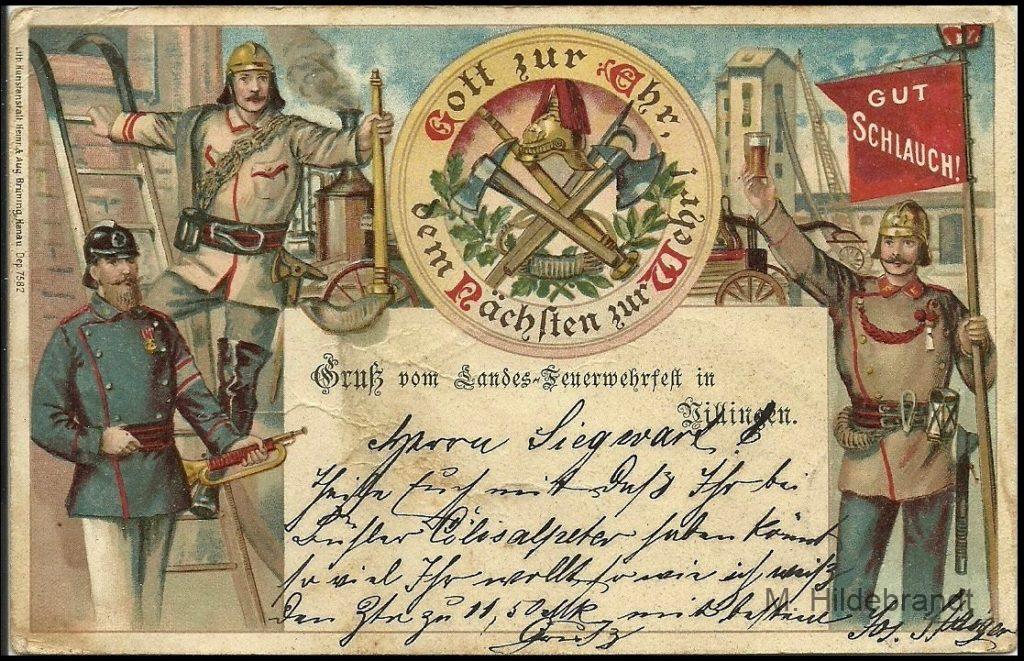 Lith. Kunstanstalt Heinr. & Aug. Brüning, Hanau. Dep. 7582
Gott zur Ehr,
dem Nächsten zur Wehr!
GUT
SCHLAUCH!
Gruß vom Landes-Feuerwehrfest in
Villingen.
Herrn Siegwart
Theile Euch mit daß Ihr bei
Bühler Chilisalpeter haben könnt
so viel Ihr wollt so wie ich weiß
den Ztr zu 11,50 Mk mit bestem
Gruß
Jos.
M. Hildebrandt